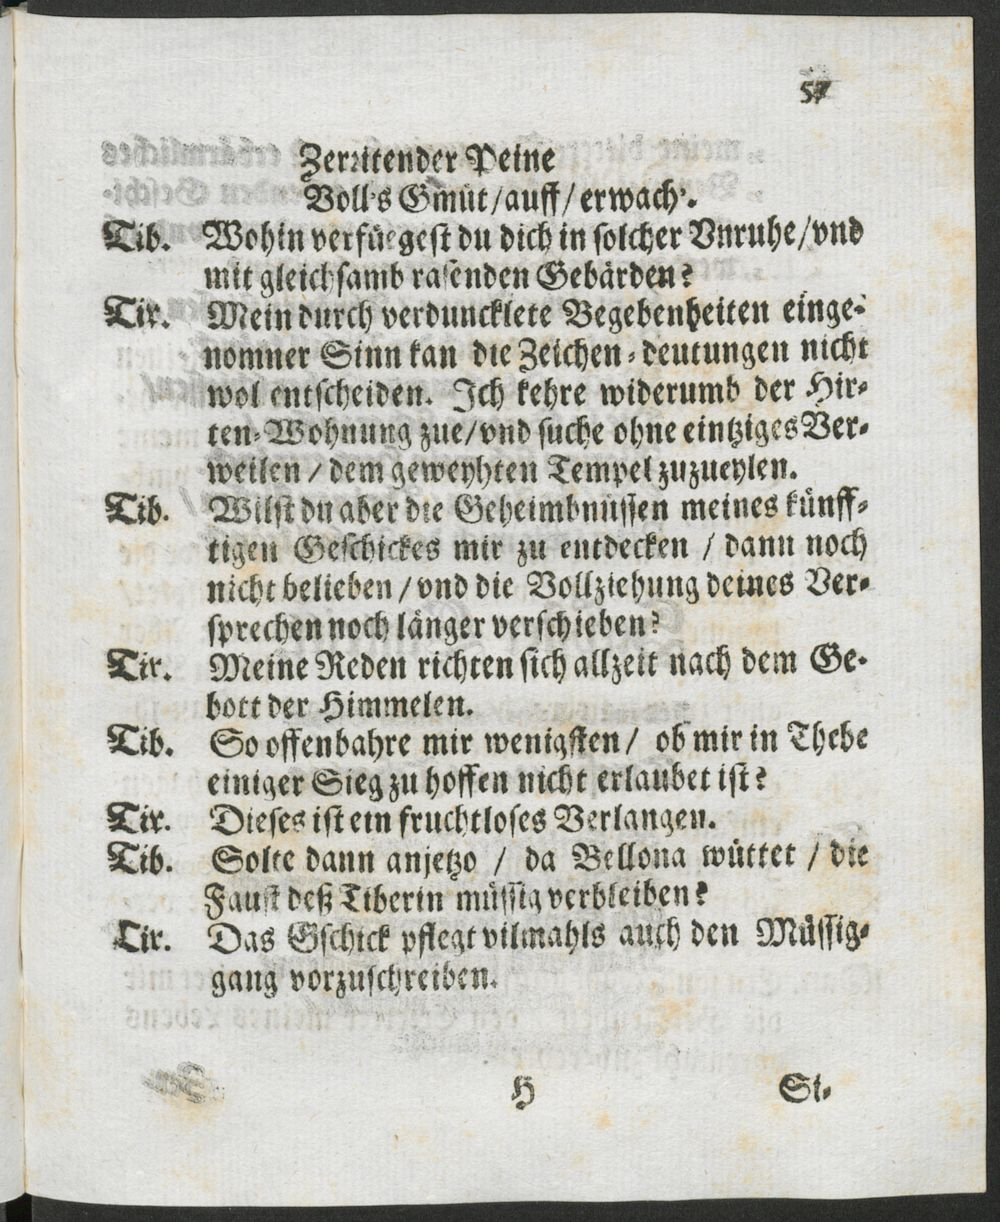 57
Zerrittender Peine
Voll's Gmüt/auff/erwach'.
Tib. Wohin verfüegest du dich in solcher Vnruhe/vnd
mit gleichsamb rasenden Gebärden?
Tir. Mein durch verduncklete Begebenheiten einge-
nomner Sinn kan die Zeichen-deutungen nicht
wol entscheiden. Ich kehre widerumb der Hir-
ten-Wohnung zue/vnd suche ohne eintziges Ver-
weilen / dem geweyhten Tempel zuzueylen.
Tib. Wilst du aber die Geheimbnüssen meines künff-
tigen Geschickes mir zu entdecken / dann noch
nicht belieben / vnd die Vollziehung deines Ver-
sprechen noch länger verschieben?
Tir. Meine Reden richten sich allzeit nach dem Ge-
bott der Himmelen.
Tib. So offenbahre mir wenigsten/ ob mir in Thebe
einiger Sieg zu hoffen nicht erlaubet ist?
Tir. Dieses ist ein fruchtloses Verlangen.
Tib. Solte dann anjetzo / da Bellona wüttet / die
Faust deß Tiberin müssig verbleiben?
Tir. Das Gschick pflegt vilmahls auch den Müssig-
gang vorzuschreiben.
H Si-